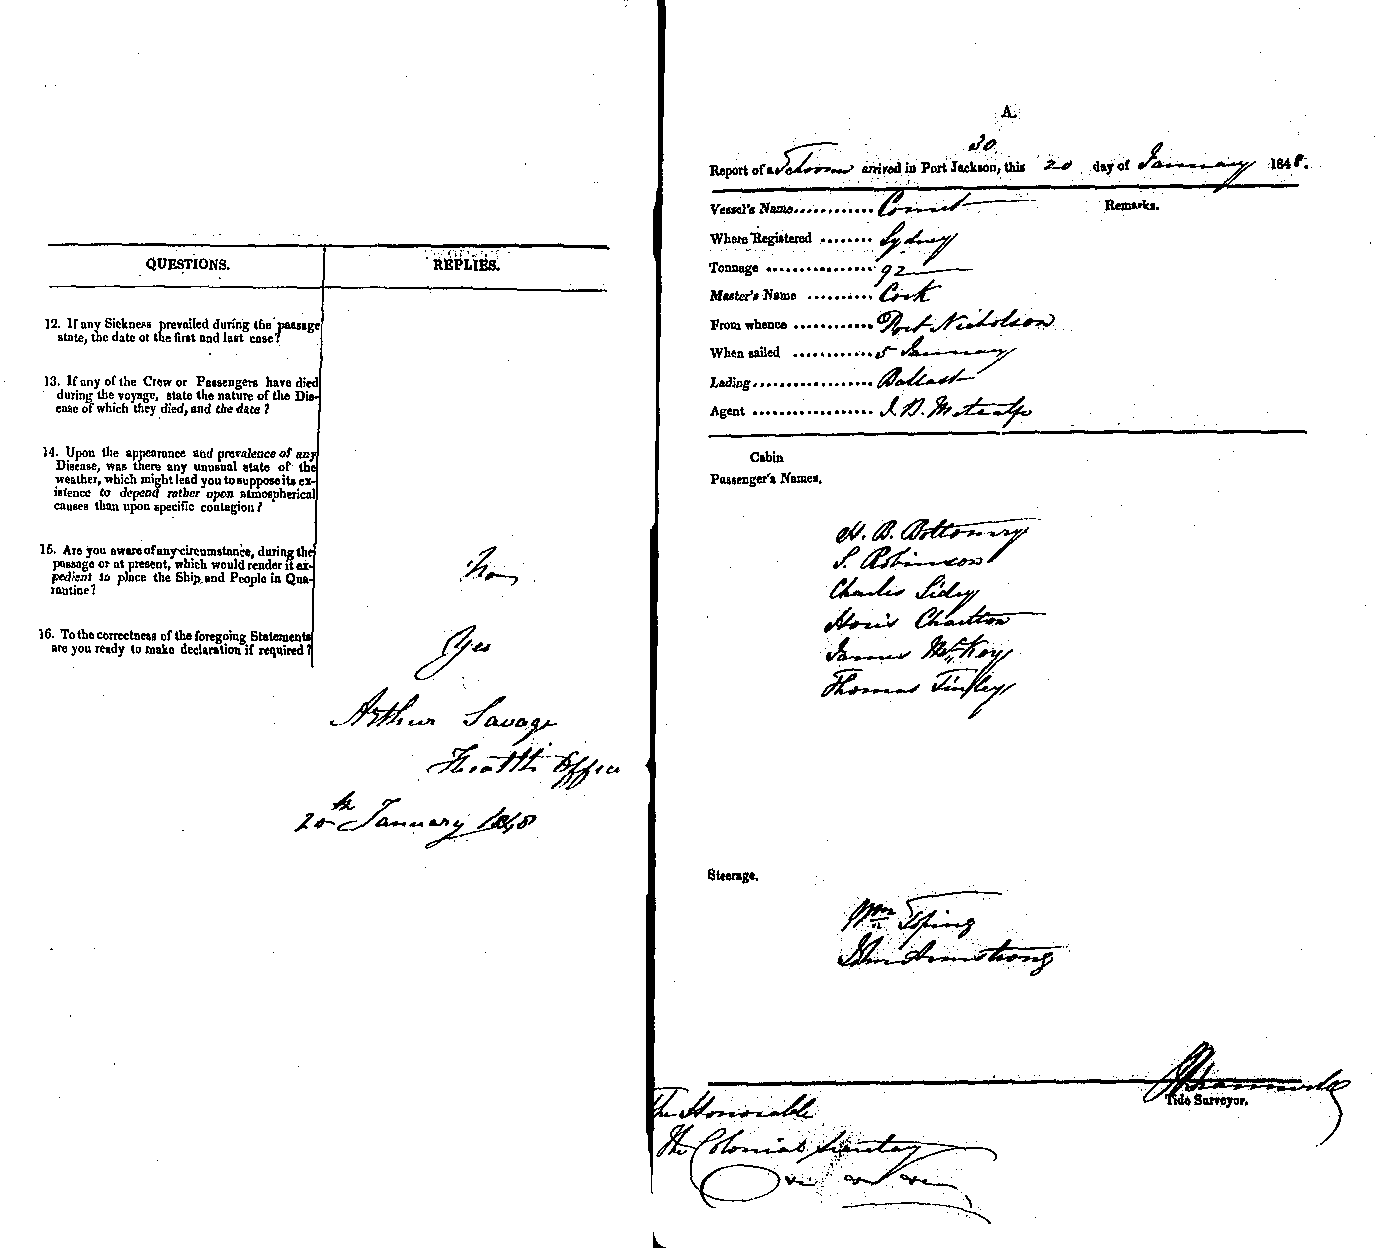 QUESTIONS.
REPLIES.
12. If any Sickness prevailed during the passage
state, the date of the first and last case?
13. If any of the Crew or Passengers have died
during the voyage, state the nature of the Dis-
ease of which they died, and the date?
14. Upon the appearance and prevalence of any
Disease, was there any unusual state of the
weather, which might lead you to suppose its ex-
istence to depend rather upon atmospherical
causes than upon specific contagion?
15. Are you aware of any circumstance, during the
passage or at present, which would render it ex-
pedient to place the Ship and People in Qua-
rantine?
16. To the correctness of the foregoing Statements
are you ready to make declaration if required?
Yes
Arthur Savage
Health Officer
20th January 1848
A.
30
Report of a Schooner arrived in Port Jackson, this 20 day of January 1848.
Vessel's Name............ Comet
Remarks.
Where Registered ........ Sydney
Tonnage ................ 92
Master's Name .......... Cork
From whence ............ Port Nicholson
When sailed ............ 5 January
Lading.................. Ballast
Agent .................. J. B. Metcalfe
Cabin
Passenger's Names.
H. B.
S. Robinson
Charles
Charlton
James McKey
Thomas Tinley
Steerage.
Wm
John Armstrong
Tide Surveyor.
The Honorable
The Colonial Secretary